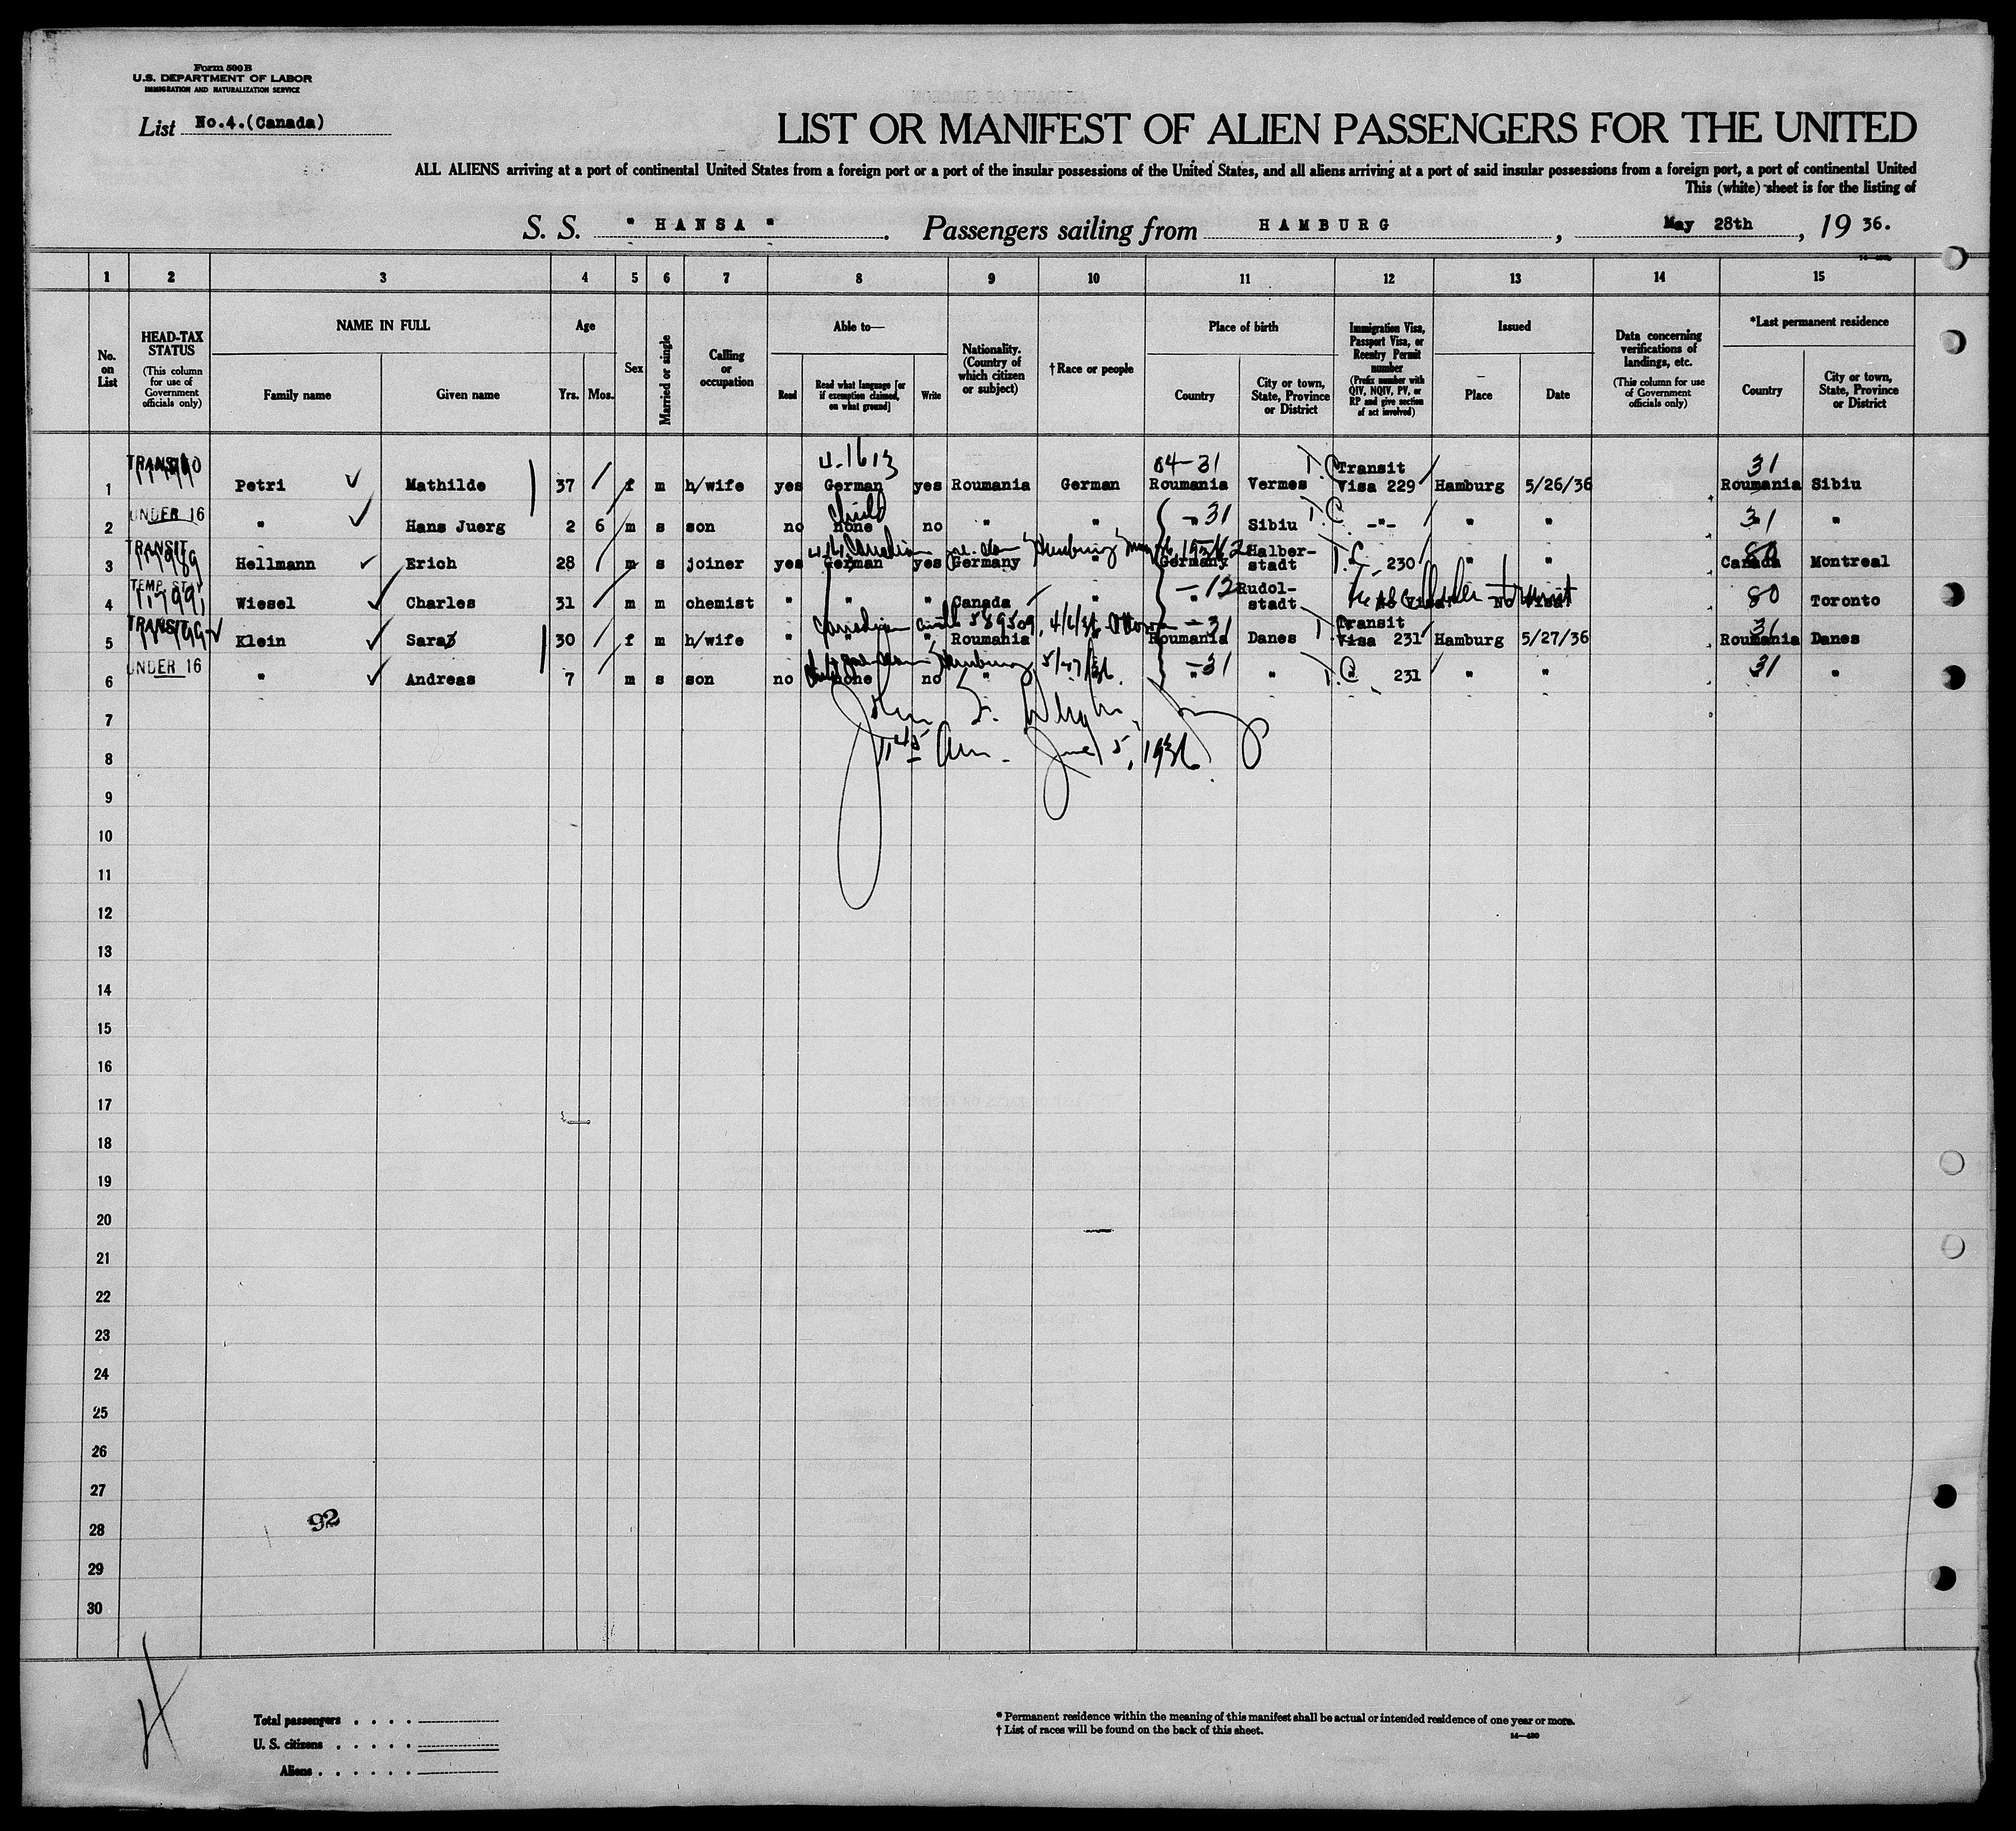 Form 500 B
U.S. DEPARTMENT OF LABOR
IMMIGRATION AND NATURALIZATION SERVICE
List No.4.(Canada)
LIST OR MANIFEST OF ALIEN PASSENGERS FOR THE UNITED
ALL ALIENS arriving at a port of continental United States from a foreign port or a port of the insular possessions of the United States, and all aliens arriving at a port of said insular possessions from a foreign port, a port of continental United
This (white) sheet is for the listing of
S. S. " HANSA " . Passengers sailing from HAMBURG , May 28th , 19 36.
1 2 3 4 5 6 7 8 9 10 11 12 13 14 15
No. on List
HEAD-TAX STATUS (This column for use of Government officials only)
NAME IN FULL Family name Given name
Age Yrs. Mos.
Sex
Married or single
Calling or occupation
Able to— Read Read what language [or if exemption claimed, on what ground] Write
Nationality. (Country of which citizen or subject)
† Race or people
Place of birth Country City or town, State, Province or District
Immigration Visa, Passport Visa, or Reentry Permit number (Prefix number with QIV, NQIV, PV, or RP and give section of act involved)
Issued Place Date
Data concerning verifications of landings, etc. (This column for use of Government officials only)
*Last permanent residence Country City or town, State, Province or District
TRANSIT 4-1613 04-31 T.C. 31
1 Petri Mathilde 37 f m h/wife yes German yes Roumania German Roumania Vermes Transit Visa 229 Hamburg 5/26/36 Roumania Sibiu
UNDER 16 Child 31 T.C. 31
2 " Hans Juerg 2 6 m s son no none no " " " Sibiu -"- " " "
TRANSIT
3 Hellmann Erich 28 m s joiner yes German yes Germany " Germany Halber-stadt T.C. 230 " " Canada Montreal
TEMP. ST. 12 80
4 Wiesel Charles 31 m m chemist " " " Canada " " Rudol-stadt No visa Toronto
TRANSIT Canadian 31 31
5 Klein Sara 30 f m h/wife " " " Roumania Roumania Danes Transit Visa 231 Hamburg 5/27/36 Roumania Danes
UNDER 16 Hamburg 5/27/36. 31 T.C. 31
6 " Andreas 7 m s son no none no " " " " 231 " " "
7
June 5, 1936.
8
9
10
11
12
13
14
15
16
17
18
19
20
21
22
23
24
25
26
27
92
28
29
30
Total passengers . . . .
U. S. citizens . . . . .
Aliens . . . . . .
* Permanent residence within the meaning of this manifest shall be actual or intended residence of one year or more.
† List of races will be found on the back of this sheet.
14—430